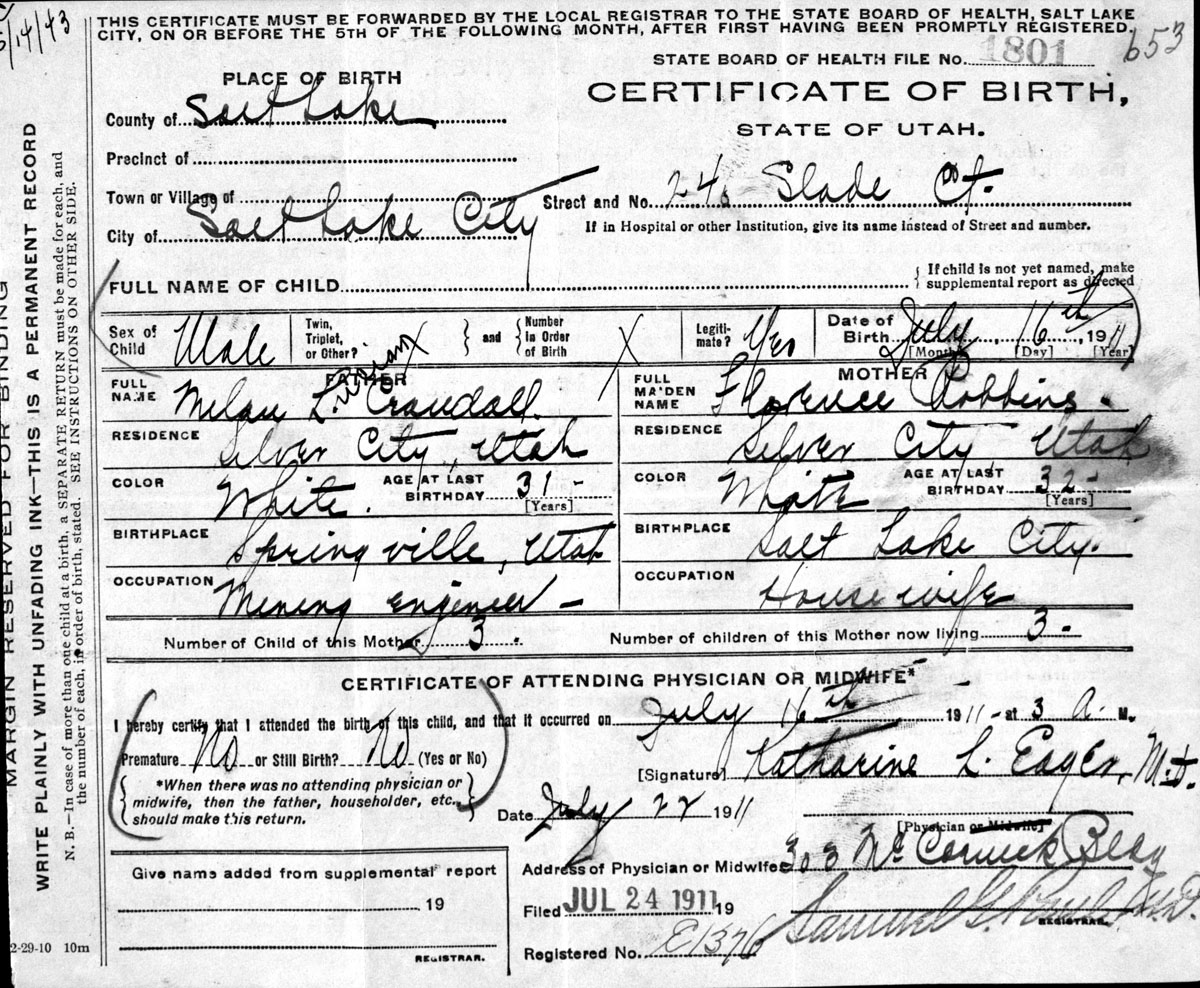 5/14/43
THIS CERTIFICATE MUST BE FORWARDED BY THE LOCAL REGISTRAR TO THE STATE BOARD OF HEALTH, SALT LAKE
CITY, ON OR BEFORE THE 5TH OF THE FOLLOWING MONTH, AFTER FIRST HAVING BEEN PROMPTLY REGISTERED.
653
STATE BOARD OF HEALTH FILE No. 1801
PLACE OF BIRTH
CERTIFICATE OF BIRTH,
STATE OF UTAH.
County of Salt Lake
Precinct of
Town or Village of
City of Salt Lake City
Street and No. 246 Slade Ct.
If in Hospital or other Institution, give its name instead of Street and number.
FULL NAME OF CHILD
If child is not yet named, make
supplemental report as directed
Sex of Child Male
Twin, Triplet, or Other? X
and
Number in Order of Birth X
Legiti-mate? Yes
Date of Birth July 16th, 1911
[Month] [Day] [Year]
FATHER
FULL NAME Milan L. Crandall.
RESIDENCE Silver City, Utah
COLOR White. AGE AT LAST BIRTHDAY 31-
[Years]
BIRTHPLACE Springville, Utah
OCCUPATION Mining engineer -
MOTHER
FULL MAIDEN NAME Florence Robbins.
RESIDENCE Silver City Utah
COLOR White AGE AT LAST BIRTHDAY 32-
[Years]
BIRTHPLACE Salt Lake City.
OCCUPATION Housewife
Number of Child of this Mother 3
Number of children of this Mother now living 3-
CERTIFICATE OF ATTENDING PHYSICIAN OR MIDWIFE*
I hereby certify that I attended the birth of this child, and that it occurred on July 16th 1911- at 3 A. M.
Premature No or Still Birth? No (Yes or No)
*When there was no attending physician or
midwife, then the father, householder, etc.,
should make this return.
[Signature] Katharine L. Eager, M.D.
Date July 22 1911
[Physician or Midwife]
Address of Physician or Midwife 303 McCornick Bldg
Give name added from supplemental report
19
REGISTRAR.
Filed JUL 24 1911 19
Samuel G. M.D.
REGISTRAR.
Registered No. E1376
2-29-10 10m
MARGIN RESERVED FOR BINDING
WRITE PLAINLY WITH UNFADING INK—THIS IS A PERMANENT RECORD
N. B.—In case of more than one child at a birth, a SEPARATE RETURN must be made for each, and
the number of each, in order of birth, stated. SEE INSTRUCTIONS ON OTHER SIDE.